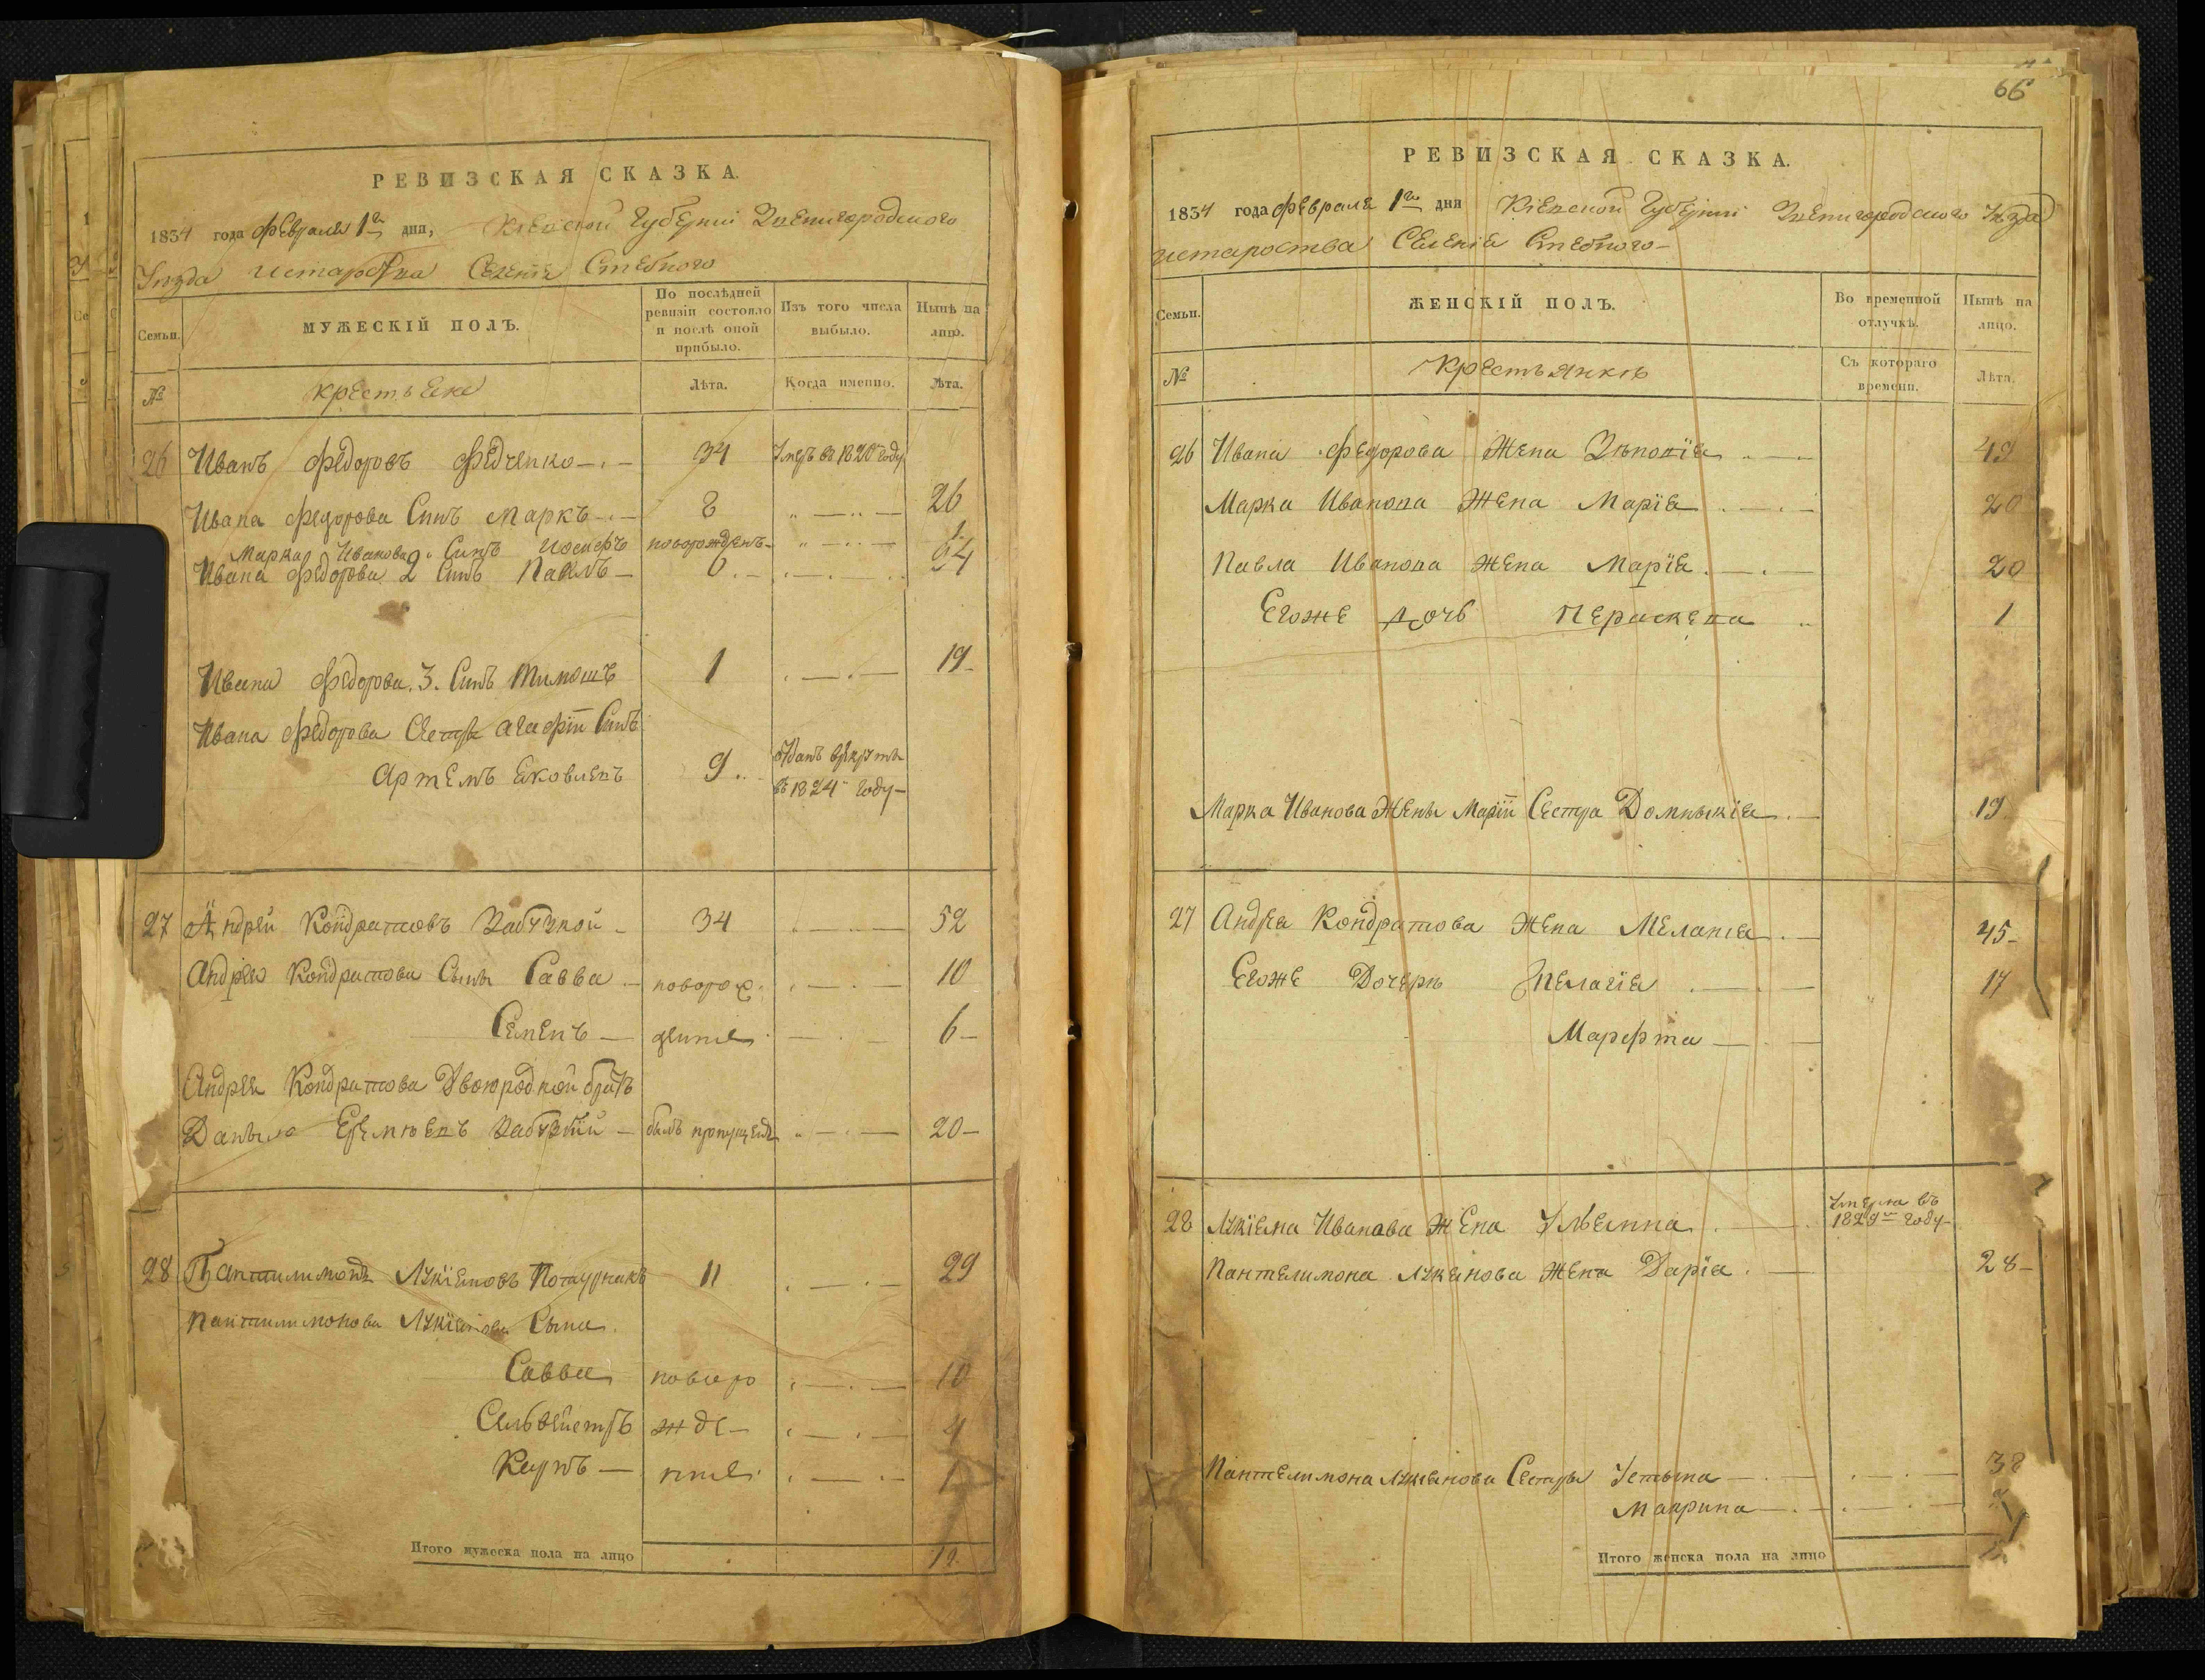 РЕВИЗСКАЯ СКАЗКА.
1834 года февраля 1го дня, Кіевской Губерніи Звенигородского
Уезда Староства Селенія Стебного
Семьи.
МУЖЕСКІЙ ПОЛЪ.
По послѣдней ревизіи состояло и послѣ оной прибыло.
Изъ того числа выбыло.
Нынѣ на лицо.
№
крестьяне
Лѣта.
Когда именно.
Лѣта.
26 Иванъ Федоровъ Федченко 34 Умеръ въ 1820 году
Ивана Федорова Синъ Маркъ 8 26
Марка Иванова Синъ новорожденъ
Ивана Федорова 2 Синъ Павелъ 6 24
Ивана Федорова. 3. Синъ Тимошъ 1 19
Ивана Федорова Сестри Агафіи Синъ
Артемъ Яковлевъ 9 отданъ врекруты
въ 1824 году
27 Андрей Кондратовъ 34 52
Андрея Кондратова Сыны Савва новорож 10
Семенъ дение 6
Андрея Кондратова Двоюродной братъ
Данило быль пропущенъ 20
28 Пантилимонъ Лукіяновъ 11 29
Пантилимонова Лукіянова Сыны
Савва новоро 10
Сильвейстръ жде 4
Карпъ ние 1
Итого мужеска пола на лицо 12.
66
РЕВИЗСКАЯ СКАЗКА.
1834 года февраля 1го дня Кіевской Губерніи Звенигородского Уезда
Староства Селенія Стебного
Семьи.
ЖЕНСКІЙ ПОЛЪ.
Во временной отлучкѣ.
Нынѣ на лицо.
№
крестьянкы
Съ котораго времени.
Лѣта.
26 Ивана Федорова Жена Зѣновія 49
Марка Иванова Жена Марія 20
Павла Иванова Жена Марія 20
Егоже дочь Пераскева 1
Марка Иванова Жены Маріи Сестра Домныкія 19
27 Андрея Кондратова Жена Меланія 45
Егоже Дочеры Пелагія 17
Марфта
28 Лукіяна Иванова жена Ульянна Умерла въ
1829м году
Пантелимона Лукянова жена Дарія 28
Пантелимона Лукянова Сестры Устына 38
Маврина
Итого женска пола на лицо